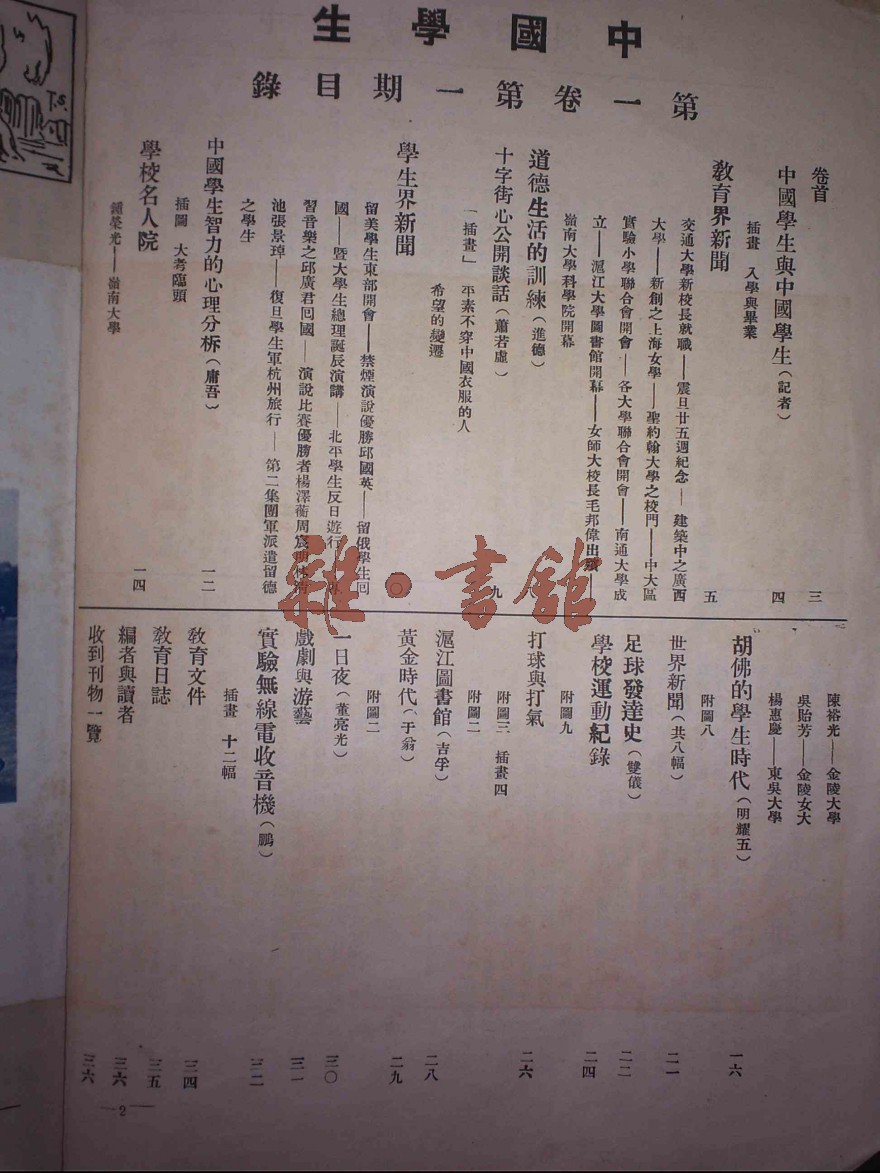 中國學生
第一卷第一期目錄
卷首 三
中國學生與中國學生(記者) 四
插畫 入學與畢業
教育界新聞 五
交通大學新校長就職——震旦廿五週紀念——建築中之廣西
大學——新創之上海女學——聖約翰大學之校門——中大區
實驗小學聯合會開會——各大學聯合會開會——南通大學成
立——滬江大學圖書館開幕——女師大校長毛邦偉出殯——
嶺南大學科學院開幕
道德生活的訓練(進德)
十字街心公開談話(蕭若虛) 九
「插畫」 平素不穿中國衣服的人
希望的變遷
學生界新聞 一〇
留美學生東部開會——禁煙演說優勝邱國英——留俄學生回
國——暨大學生總理誕辰演講——北平學生反日遊行——
習音樂之邱廣君回國——演說比賽優勝者楊澤蘅周宸明
池張景琸——復旦學生軍杭州旅行——第二集團軍派遣留德
之學生
中國學生智力的心理分析(庸吾) 一二
插圖 大考臨頭
學校名人院 一四
鍾榮光——嶺南大學
陳裕光——金陵大學
吳貽芳——金陵女大
楊惠慶——東吳大學
胡佛的學生時代(明耀五) 一六
附圖八
世界新聞(共八幅) 二一
足球發達史(雙儀) 二二
學校運動紀錄 二四
附圖九
打球與打氣 二六
附圖三 插畫四
附圖二
滬江圖書館(吉孚) 二八
黃金時代(于翁) 二九
附圖二
一日夜(董亮光) 三〇
戲劇與游藝 三一
實驗無線電收音機(鵬) 三二
插畫 十二幅
教育文件 三四
教育日誌 三五
編者與讀者 三六
收到刊物一覽 三六
—2—
T.S.
雜·書館